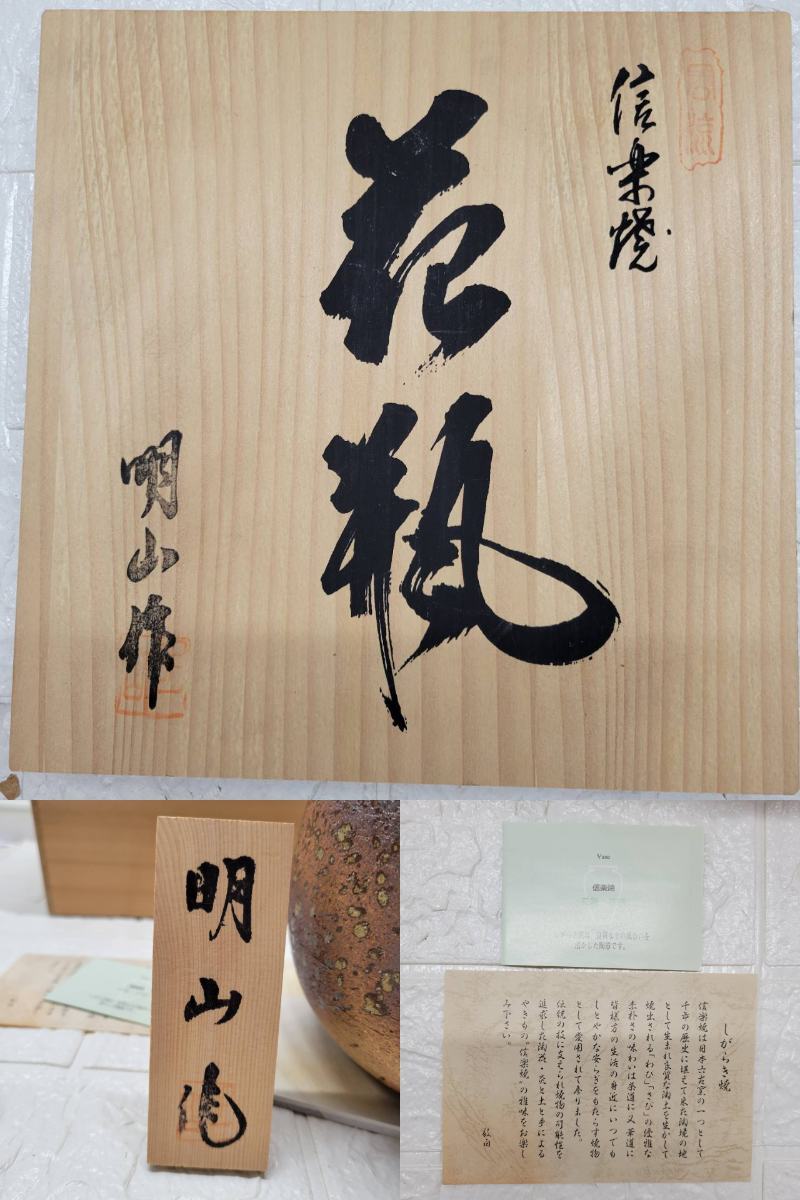 信楽焼
花瓶
明山作
明山作
Vase
信楽焼
しがらき焼
信楽焼は日本六古窯の一つとして
千市の歴史に堪えて来た陶境の地
として生まれ良質な陶土を生かして
焼出される「わび」「さび」の優雅な
素朴さの味わいは茶道に又華道に
皆様方の生活の身近にいつても
しとやかな安らぎをもたらす焼物
として愛用されて参りました。
伝統の技に支えられ焼物の可能性を
追求した陶器・炎と土と手による
やきもの“信楽焼”の雅味をお楽し
み下さい。
敬白